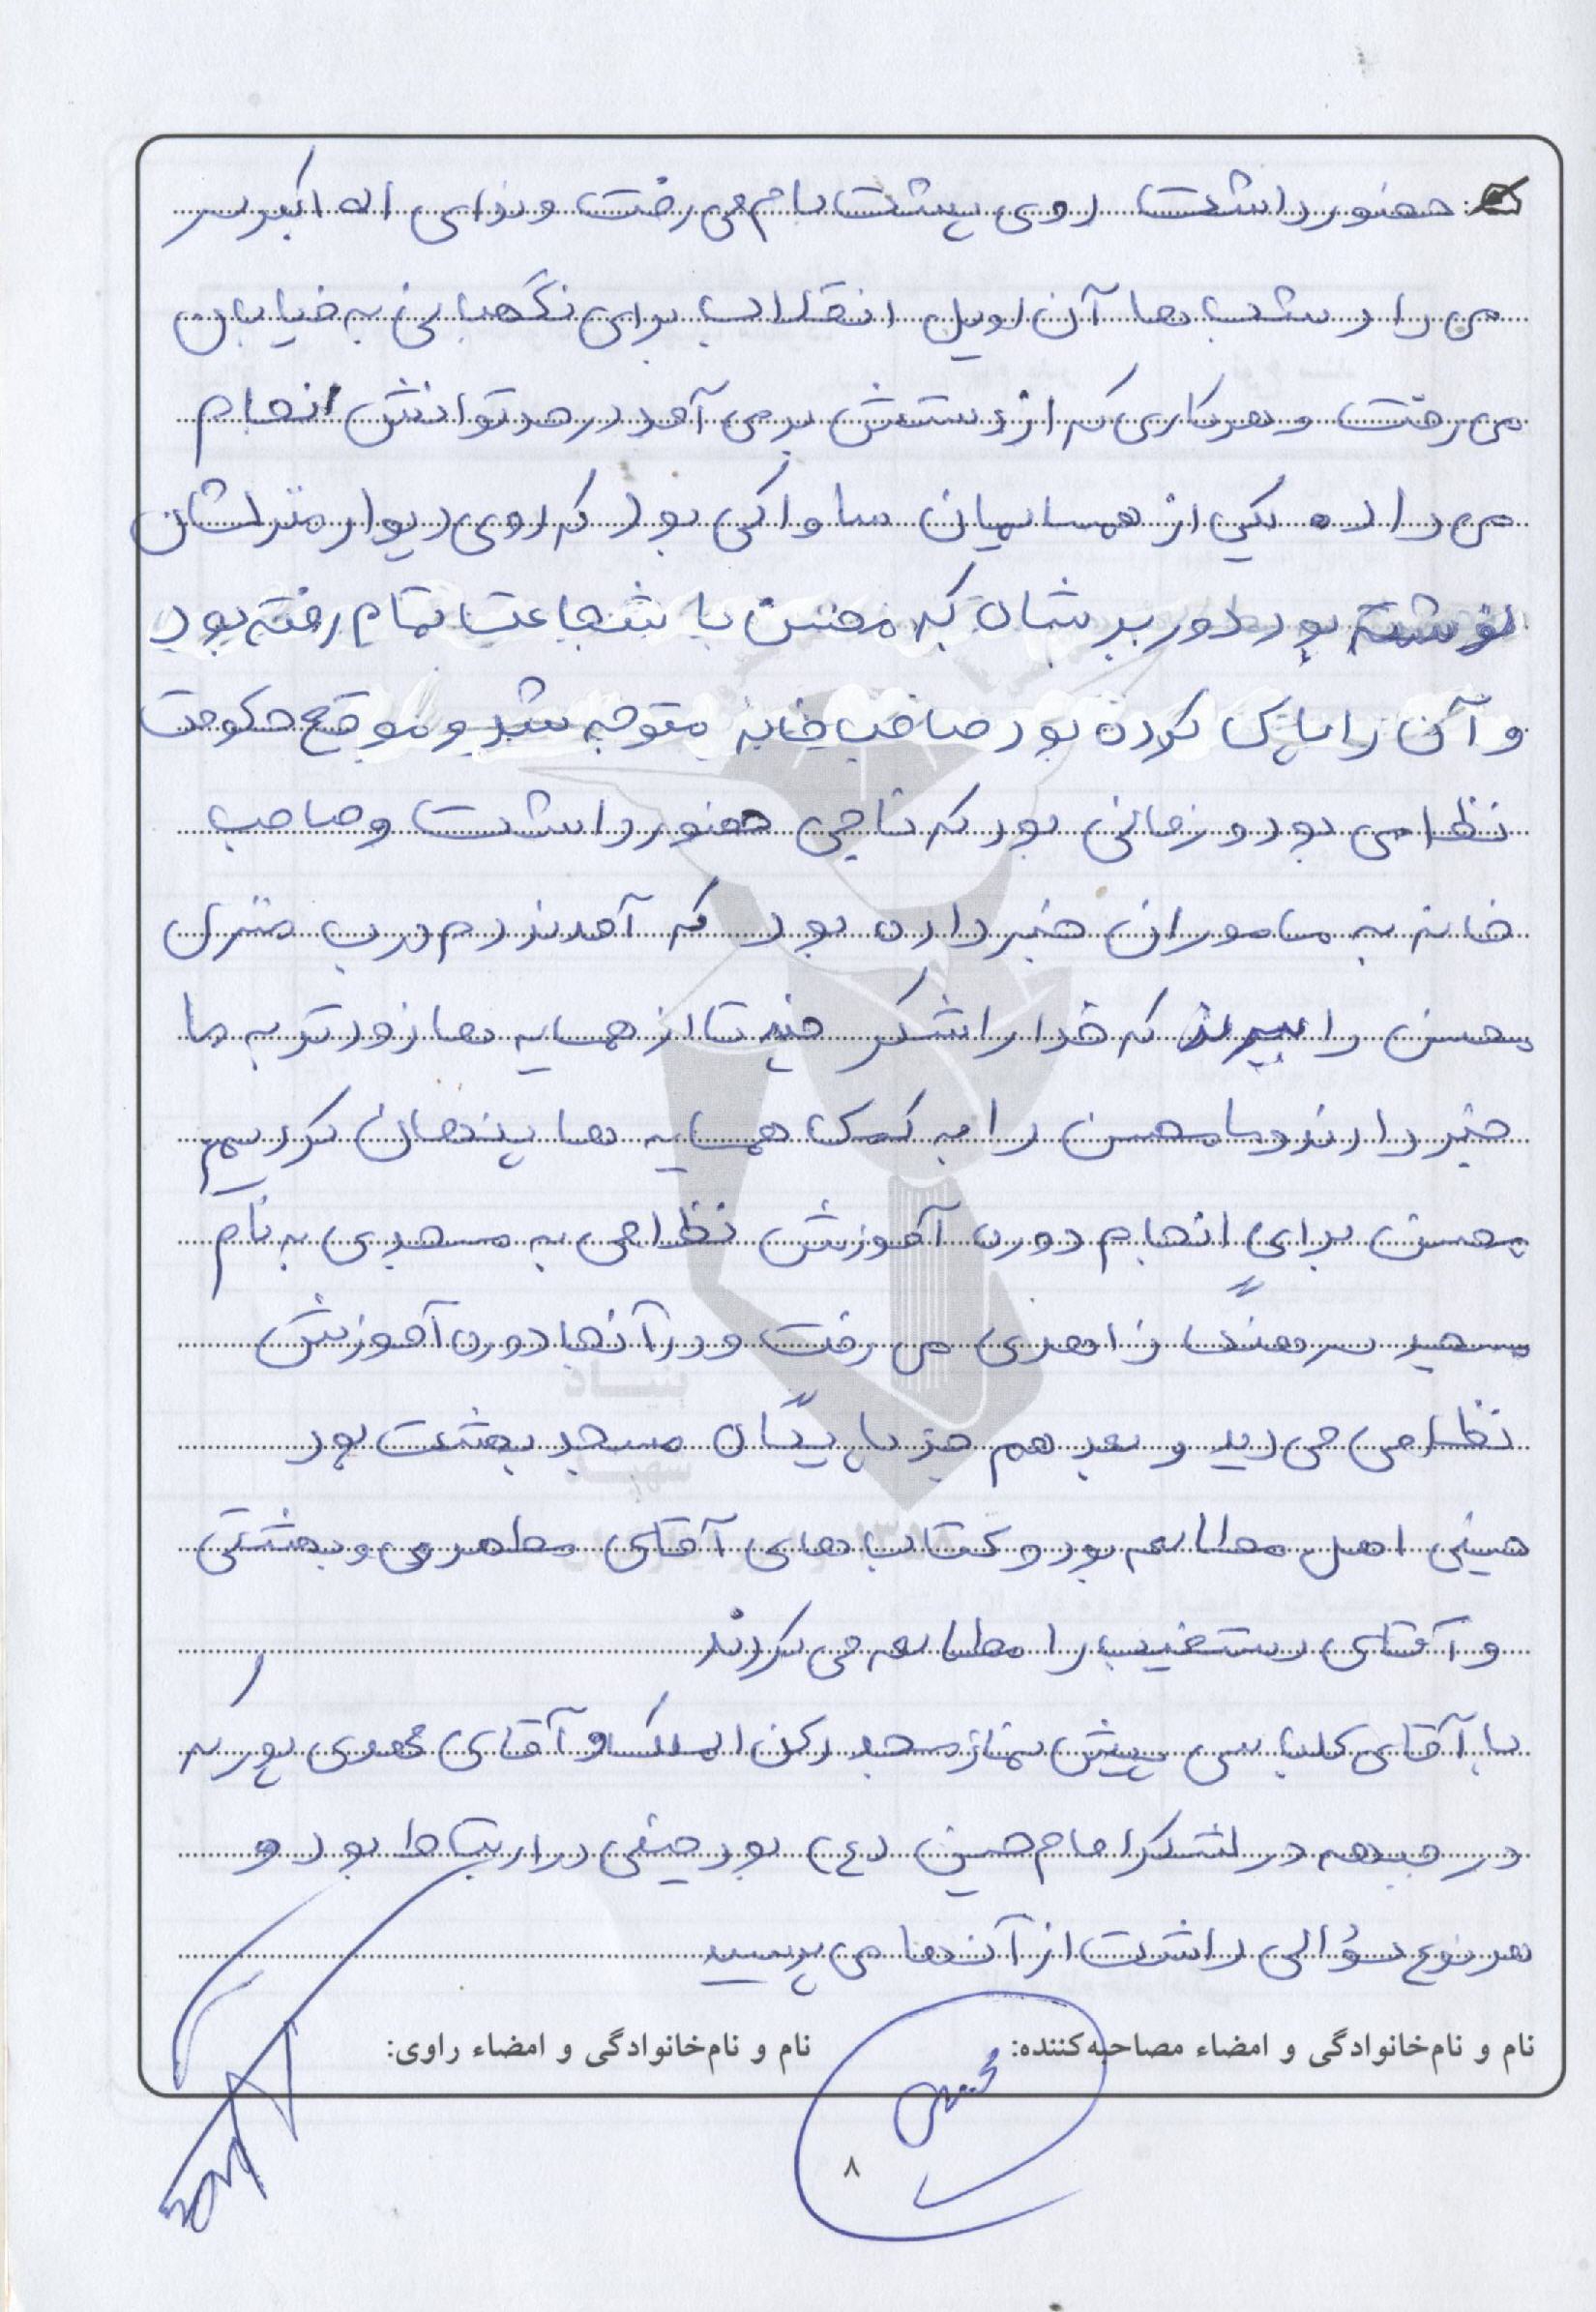 حضور داشت روی پشت بام می رفت و ندای اله اکبر سر
می داد شب ها آن اویل انقلاب برای نگهبانی به خیابان
می رفت و هر کاری که از دستش بر می آمد در حد توانش انجام
می داد ه یکی از همسایمان ساواکی بود که روی دیوار منزلشان
نوشته بود درود بر شاه که محسن با شجاعت تمام رفته بود
و آن را پاک کرده بود صاحب خانه متوجه شد و موقع حکومت
نظامی بود و زمانی بود که ناجی حضور داشت و صاحب
خانه به ماموران خبر داده بود که آمدند دم درب منزل
محسن را ببرند که خدا را شکر چند تا از همسایه ها زودتر به ما
خبر دادند و ما محسن را به کمک همسایه ها پنهان کردیم
محسن برای انجام دوره آموزش نظامی به مسجدی به نام
سرهنگ زاهدی می رفت و در آنجا دوره آموزش
نظامی می دید و بعد هم جز پایگاه مسجد بهشت بود
خیلی اهل مطالعه بود و کتاب های آقای مطهری و بهشتی
و آقای دستغیب را مطالعه می کردند
با آقای کلباسی پیش نماز مسجد رکن الملک و آقای محمدی پور که
در جبهه در لشکر امام حسین (ع) بود خیلی در ارتباط بود و
هر نوع سؤالی داشت از آنها می پرسید
نام و نام‌خانوادگی و امضاء مصاحبه‌کننده: نام و نام‌خانوادگی و امضاء راوی:
۸